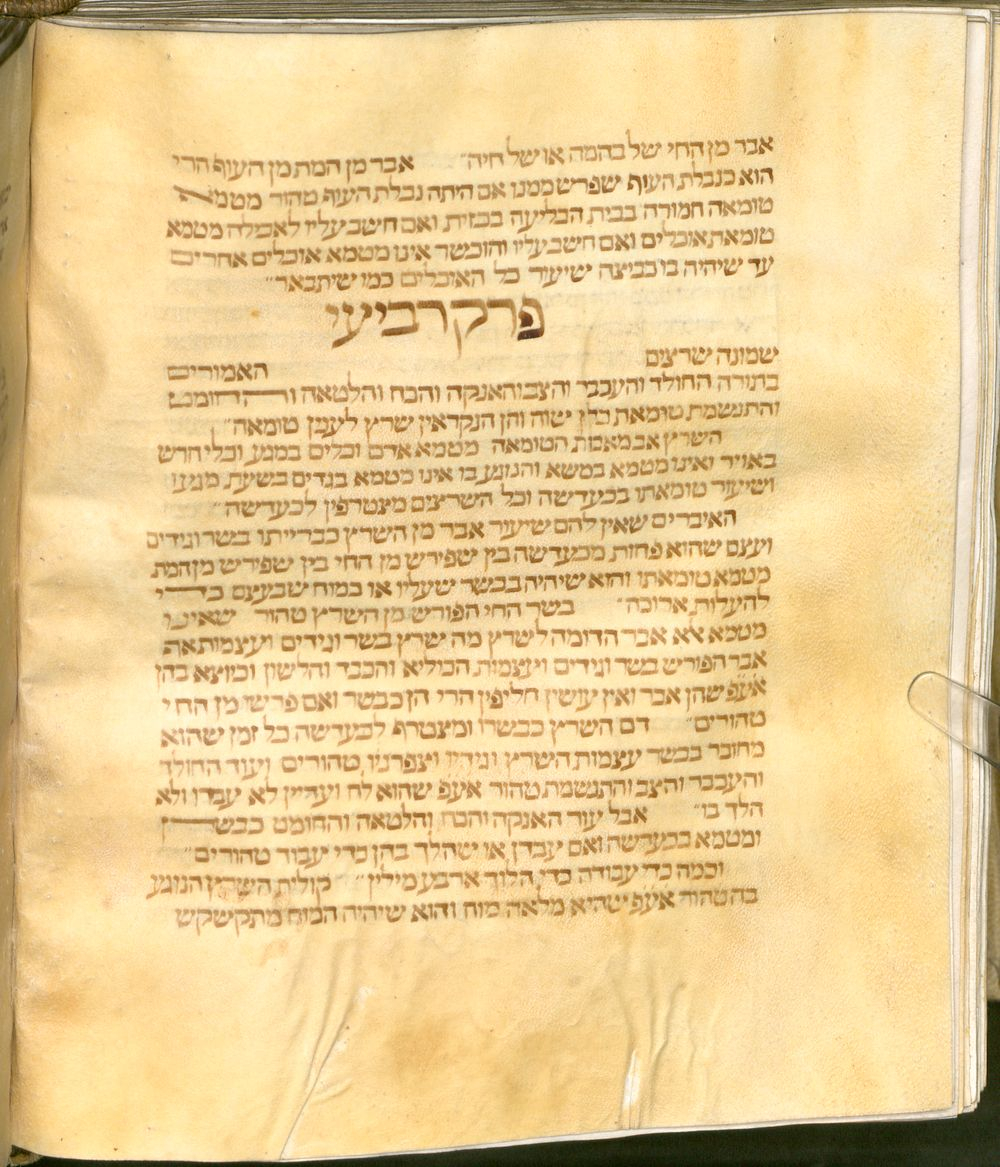 אבר מן החי של בהמה או של חיה״ אבר מן המת מן העוף הרי
הוא כנבלת העוף שפרש ממנו אם היתה נבלת העוף טהור מטמא
טומאה חמורה בבית הבליעה בכזית ואם חשב עליו לאכילה מטמא
טומאת אוכלים ואם חשב עליו והוכשר אינו מטמא אוכלים אחרים
עד שיהיה בו כביצה שיעור כל האוכלים כמו שיתבאר״
פרק רביעי
שמונה שרצים האמורים
בתורה החולד והעכבר והצב והאנקה והכח והלטאה והחומט
והתנשמת טומאת כלן שוה והן הנקראין שרץ לענין טומאה״
השרץ אב מאבות הטומאה מטמא אדם וכלים במגע וכלי חרש
באויר ואינו מטמא במשא והנוגע בו אינו מטמא בגדים בשעת מגעו
ושיעור טומאתו בכעדשה וכל השרצים מצטרפין לכעדשה״
האיברים שאין להם שיעור אבר מן השרץ כברייתו בשר וגידים
ועצם שהוא פחות מכעדשה בין שפירש מן החי בין שפירש מן המת
מטמא טומאתו והוא שיהיה בבשר שעליו או במוח שבעצם כדי
להעלות ארוכה״ בשר החי הפורש מן השרץ טהור שאינו
מטמא אלא אבר הדומה לשרץ מה שרץ בשר וגידים ועצמות אף
אבר הפורש בשר וגידים ועצמות הכוליא והכבד והלשון וכיוצא בהן
אעפ שהן אבר ואין עושין חליפין הרי הן כבשר ואם פרשו מן החי
טהורים״ דם השרץ כבשרו ומצטרף לכעדשה כל זמן שהוא
מחובר בבשר עצמות השרץ וגידיו וצפרניו טהורים ועור החולד
והעכבר והצב והתנשמת טהור אעפ שהוא לח ועדיין לא עבדו ולא
הלך בו״ אבל עור האנקה והכח והלטאה והחומט כבשרן
ומטמא בכעדשה ואם עבדן או שהלך בהן כדי עבוד טהורים״
וכמה כדי עבודה כדי הלוך ארבע מילין״ קולית השרץ הנוגע
בה טהור אעפ שהיא מלאה מוח והוא שיהיה המוח מתקשקש